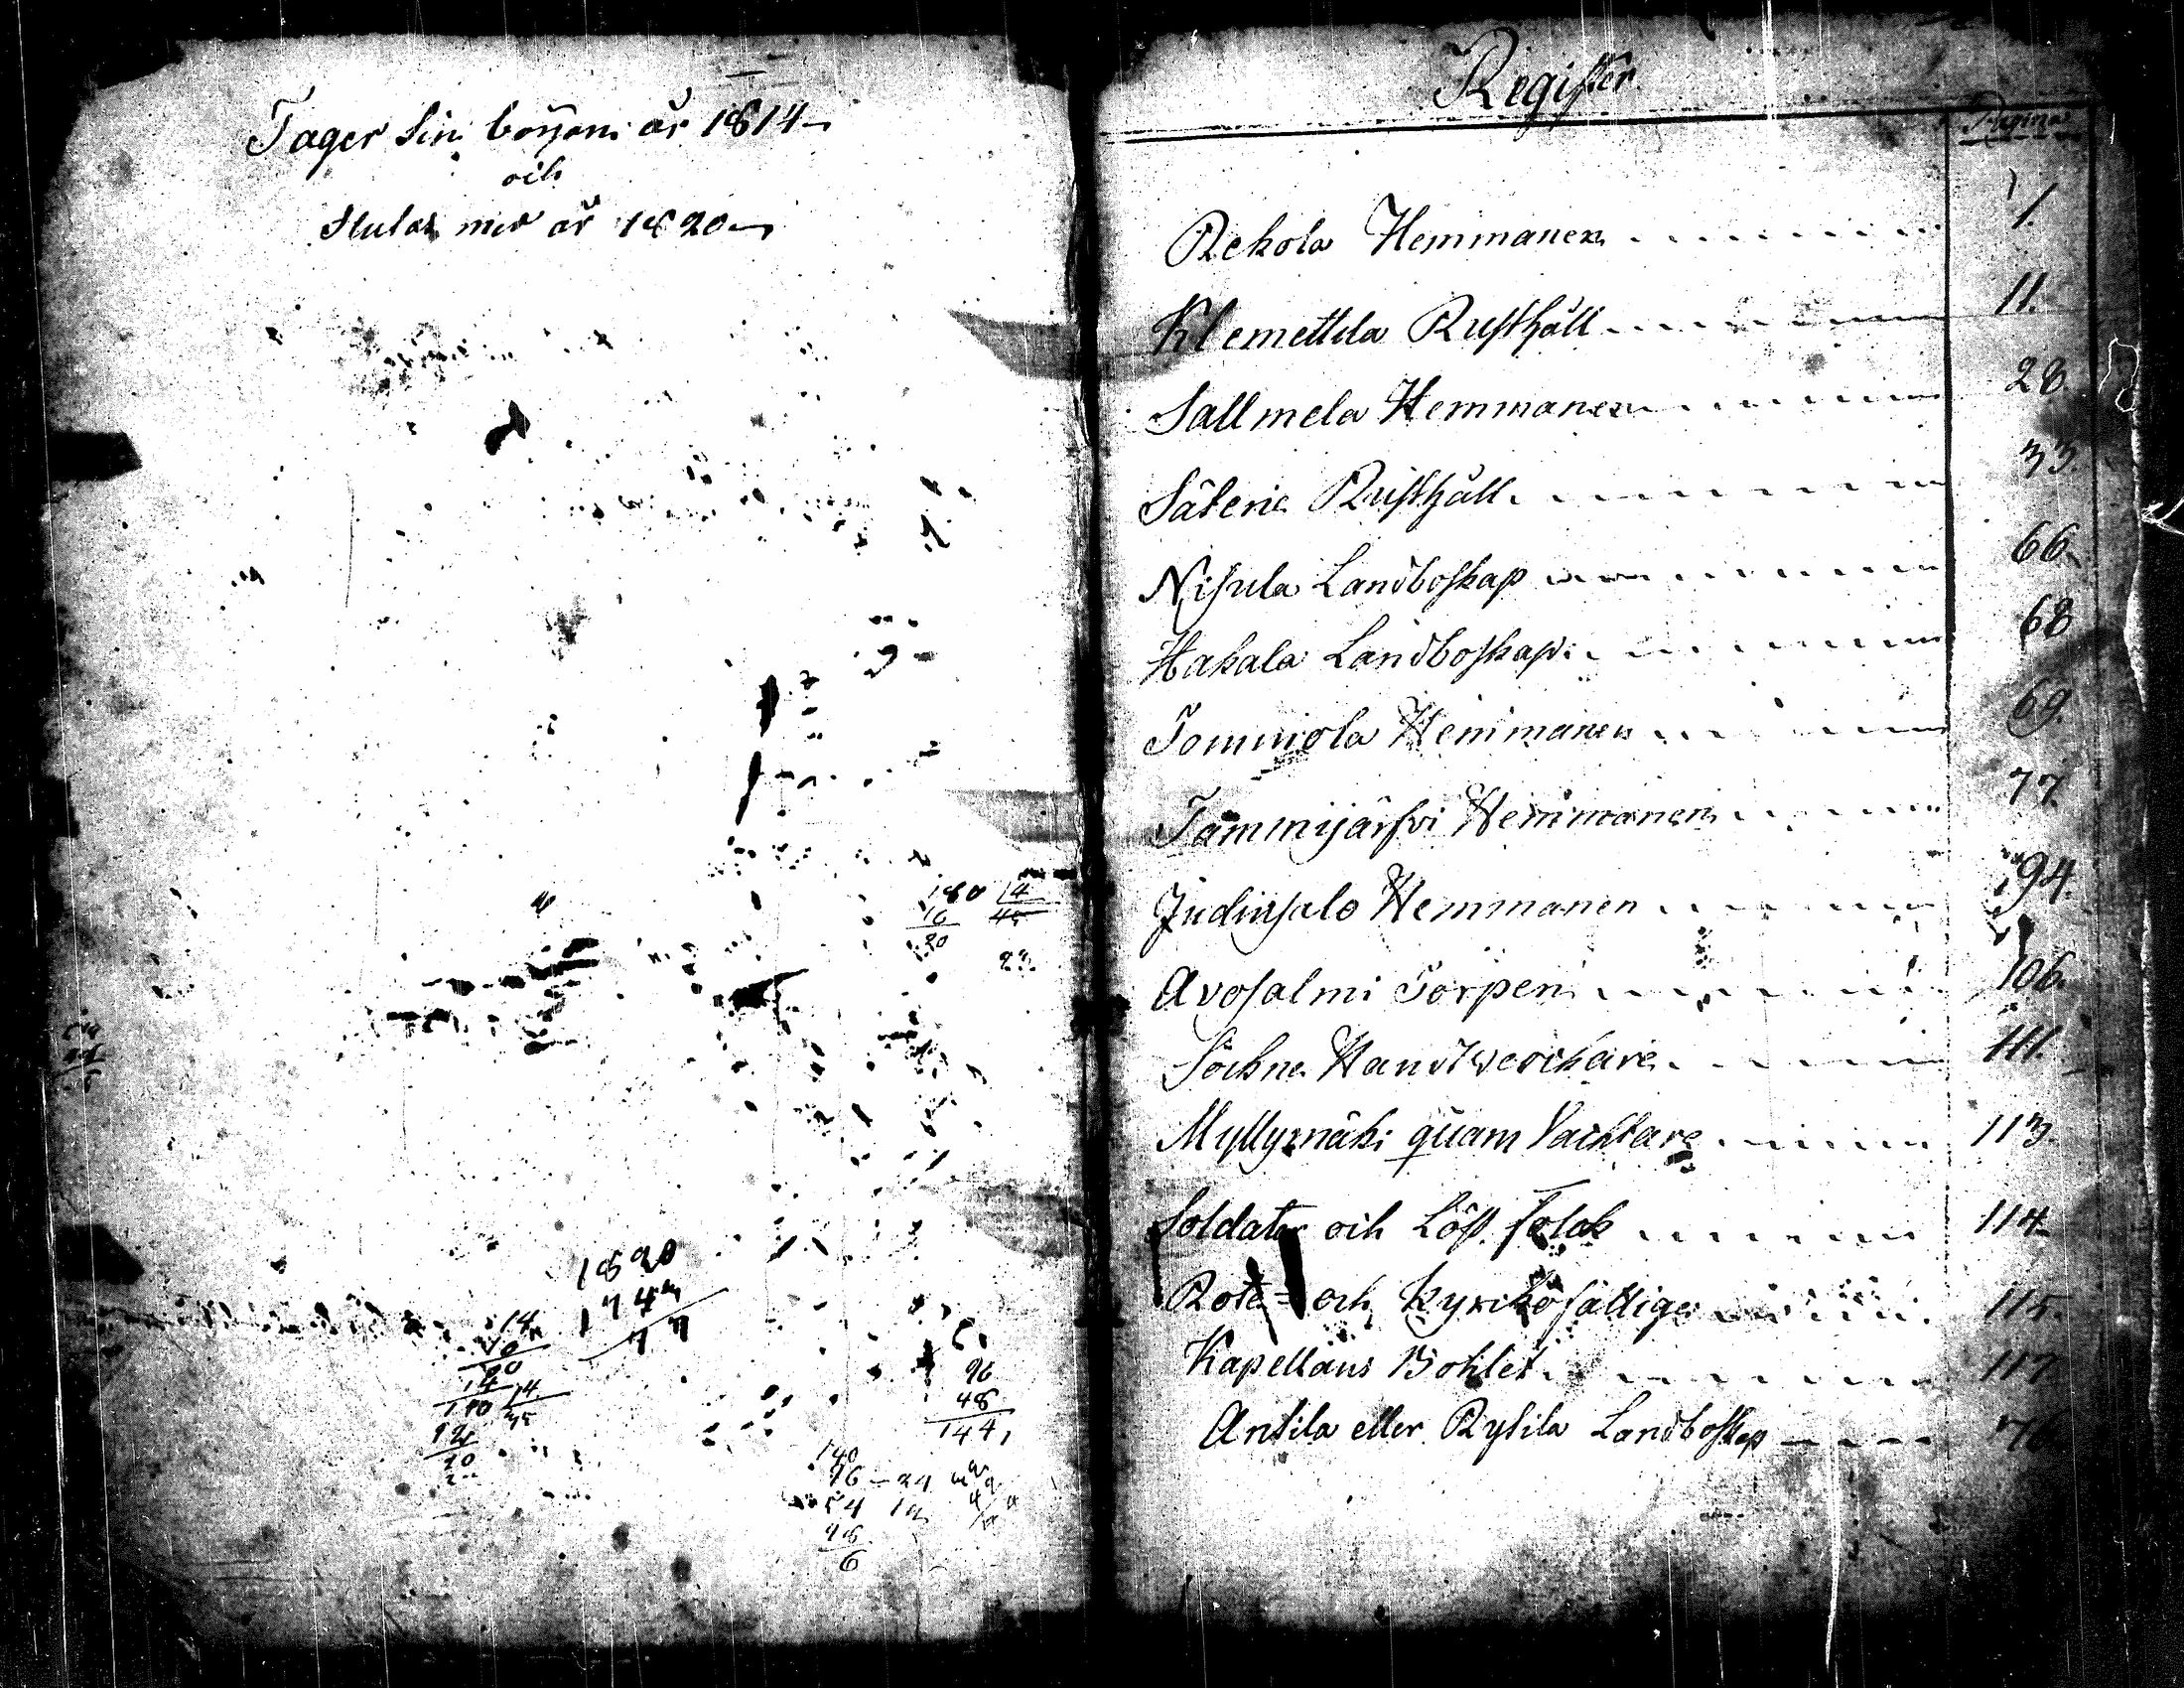 Tager sin början år 1814
och
slutas med år 1820
180 14
16 45
20
23
1820
1743
77
14
96
48
144
Register
Pagina
Rekola Hemmanen 1.
Klemettila Rusthåll 11.
Sallmela Hemmanen 28
Säterie Rusthåll 33.
Nisula Landboskap 66
Hakala Landboskap 68
Tommola Hemmanen 69.
Tammijärfvi Hemmanen 77.
Judinsalo Hemmanen 94
Avosalmi Torpen 106.
Sockne Handtverckare 111.
Myllymäki quarn Vacktare 113.
Soldater och Löst Folck 114
Rote- och Kyrckofattige 115.
Kapellans Bohlet 117
Antila eller Rytila Landboskap 76